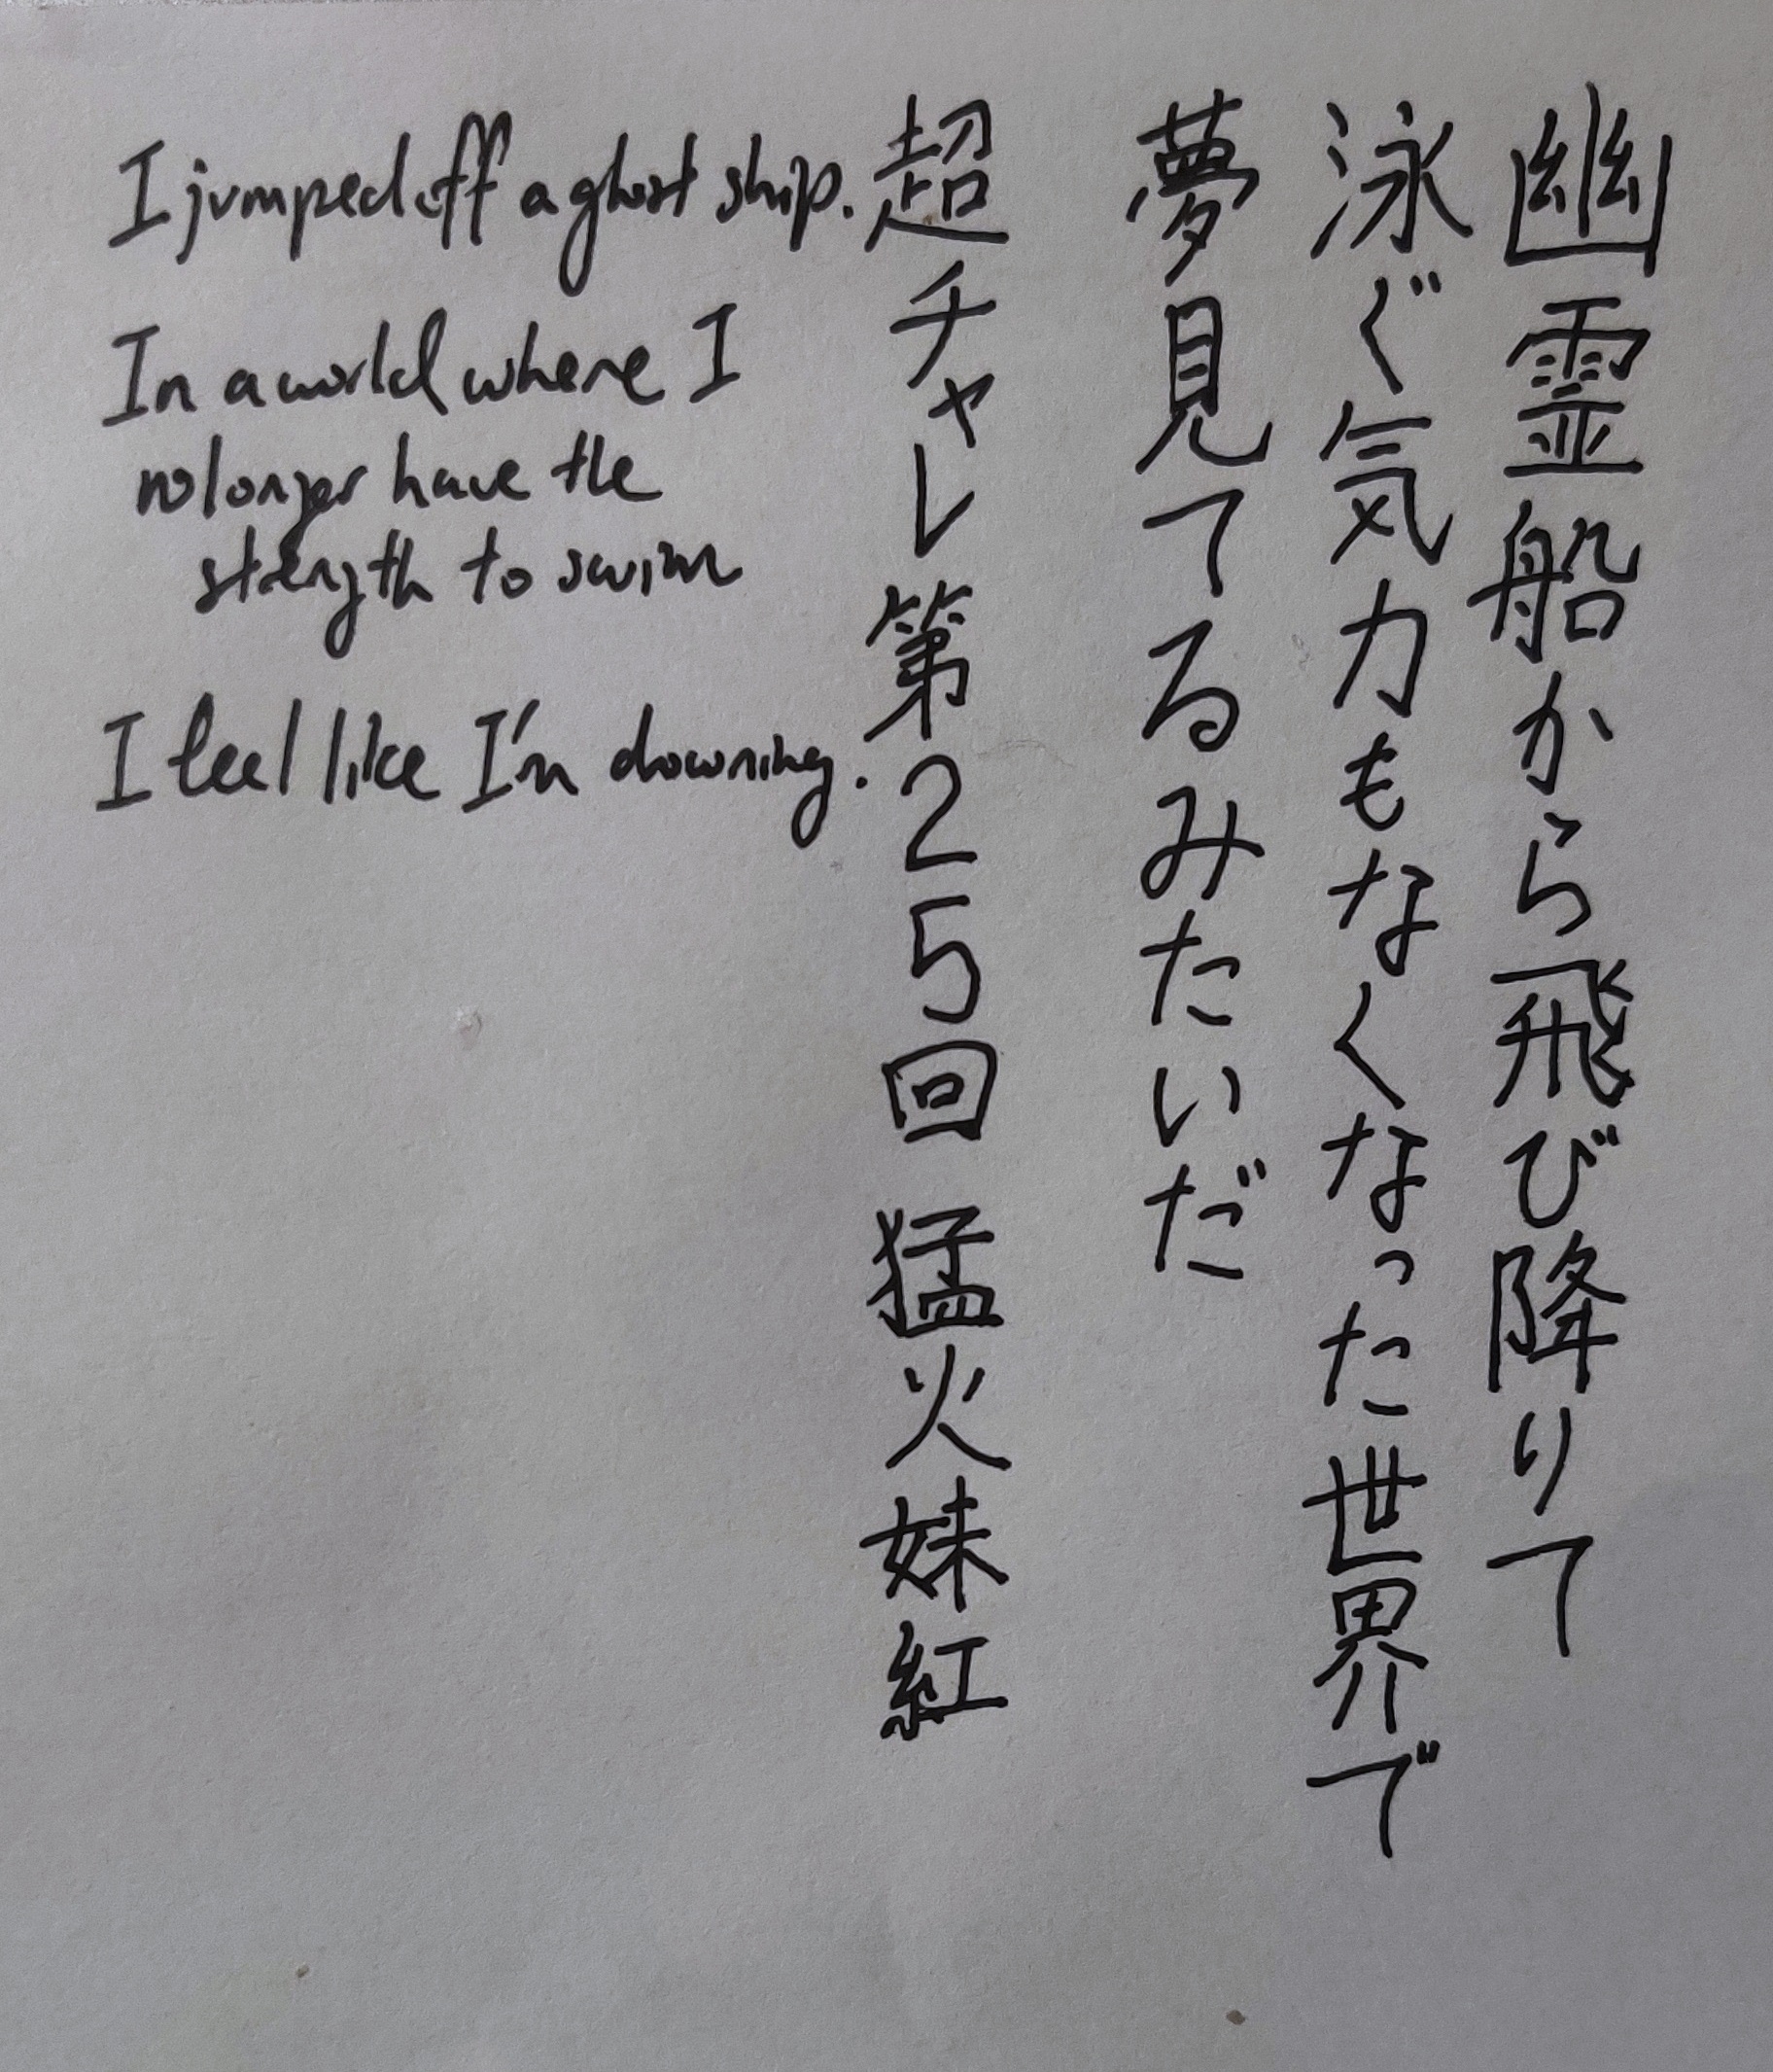 幽霊船から飛び降りて
泳ぐ気力もなくなった世界で
夢見てるみたいだ
超チャレ第25回 猛火妹紅
I jumped off a ghost ship.
In a world where I
no longer have the
strength to swim
I feel like I'm drowning.